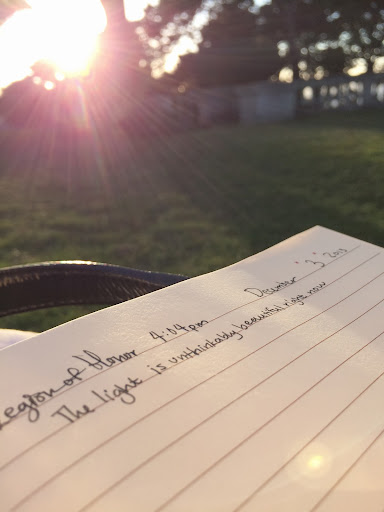 Legion of Honor 4:04pm December "3"
The light is unthinkably beautiful right now